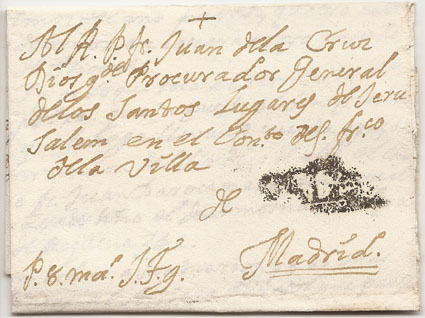 Al R. P. fr. Juan della Cruz
Dios g.de Procurador General
delos Santos Lugares de Jeru
salem en el Con.to de S. fr.co
della Villa
de
Madrid.
P. 8. ma.s J. F. g.